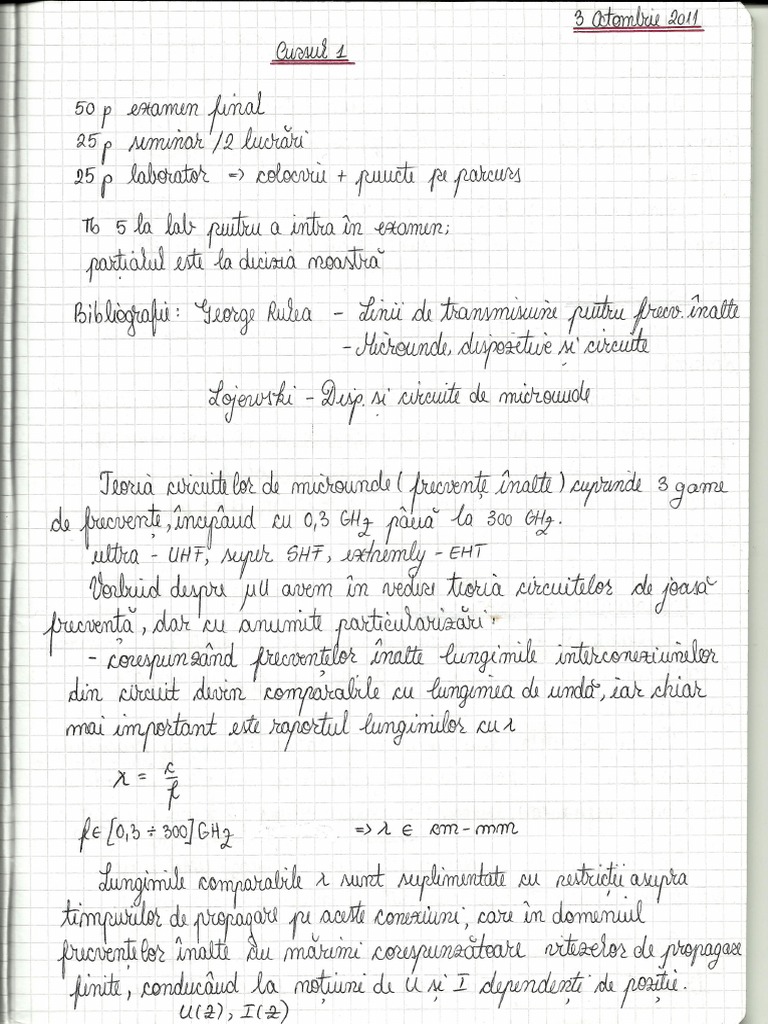 3 Octombrie 2011
Cursul 1
50 p examen final
25 p seminar /2 lucrări
25 p laborator => colocviu + puncte pe parcurs
Tb 5 la lab pentru a intra în examen;
parțialul este la decizia noastră
Bibliografie: George Rulea - Linii de transmisiune pentru frecv. înalte
- Microunde, dispozitive și circuite
Lojewski - Disp. și circuite de microunde
Teoria circuitelor de microunde (frecvențe înalte) cuprinde 3 game
de frecvențe, începând cu 0,3 GHz până la 300 GHz.
ultra - UHF, super SHF, extremly - EHF
Vorbind despre μU avem în vedere teoria circuitelor de joasă
frecvență, dar cu anumite particularizări:
- corespunzând frecvențelor înalte lungimile interconexiunilor
din circuit devin comparabile cu lungimea de undă, iar chiar
mai important este raportul lungimilor cu λ
λ = c/f
f ∈ [0,3 ÷ 300] GHz => λ ∈ cm - mm
Lungimile comparabile λ sunt suplimentate cu restricții asupra
timpurilor de propagare pe aceste conexiuni, care în domeniul
frecvențelor înalte au mărimi corespunzătoare vitezelor de propagare
finite, conducând la noțiuni de U și I dependenți de poziție.
U(z), I(z)